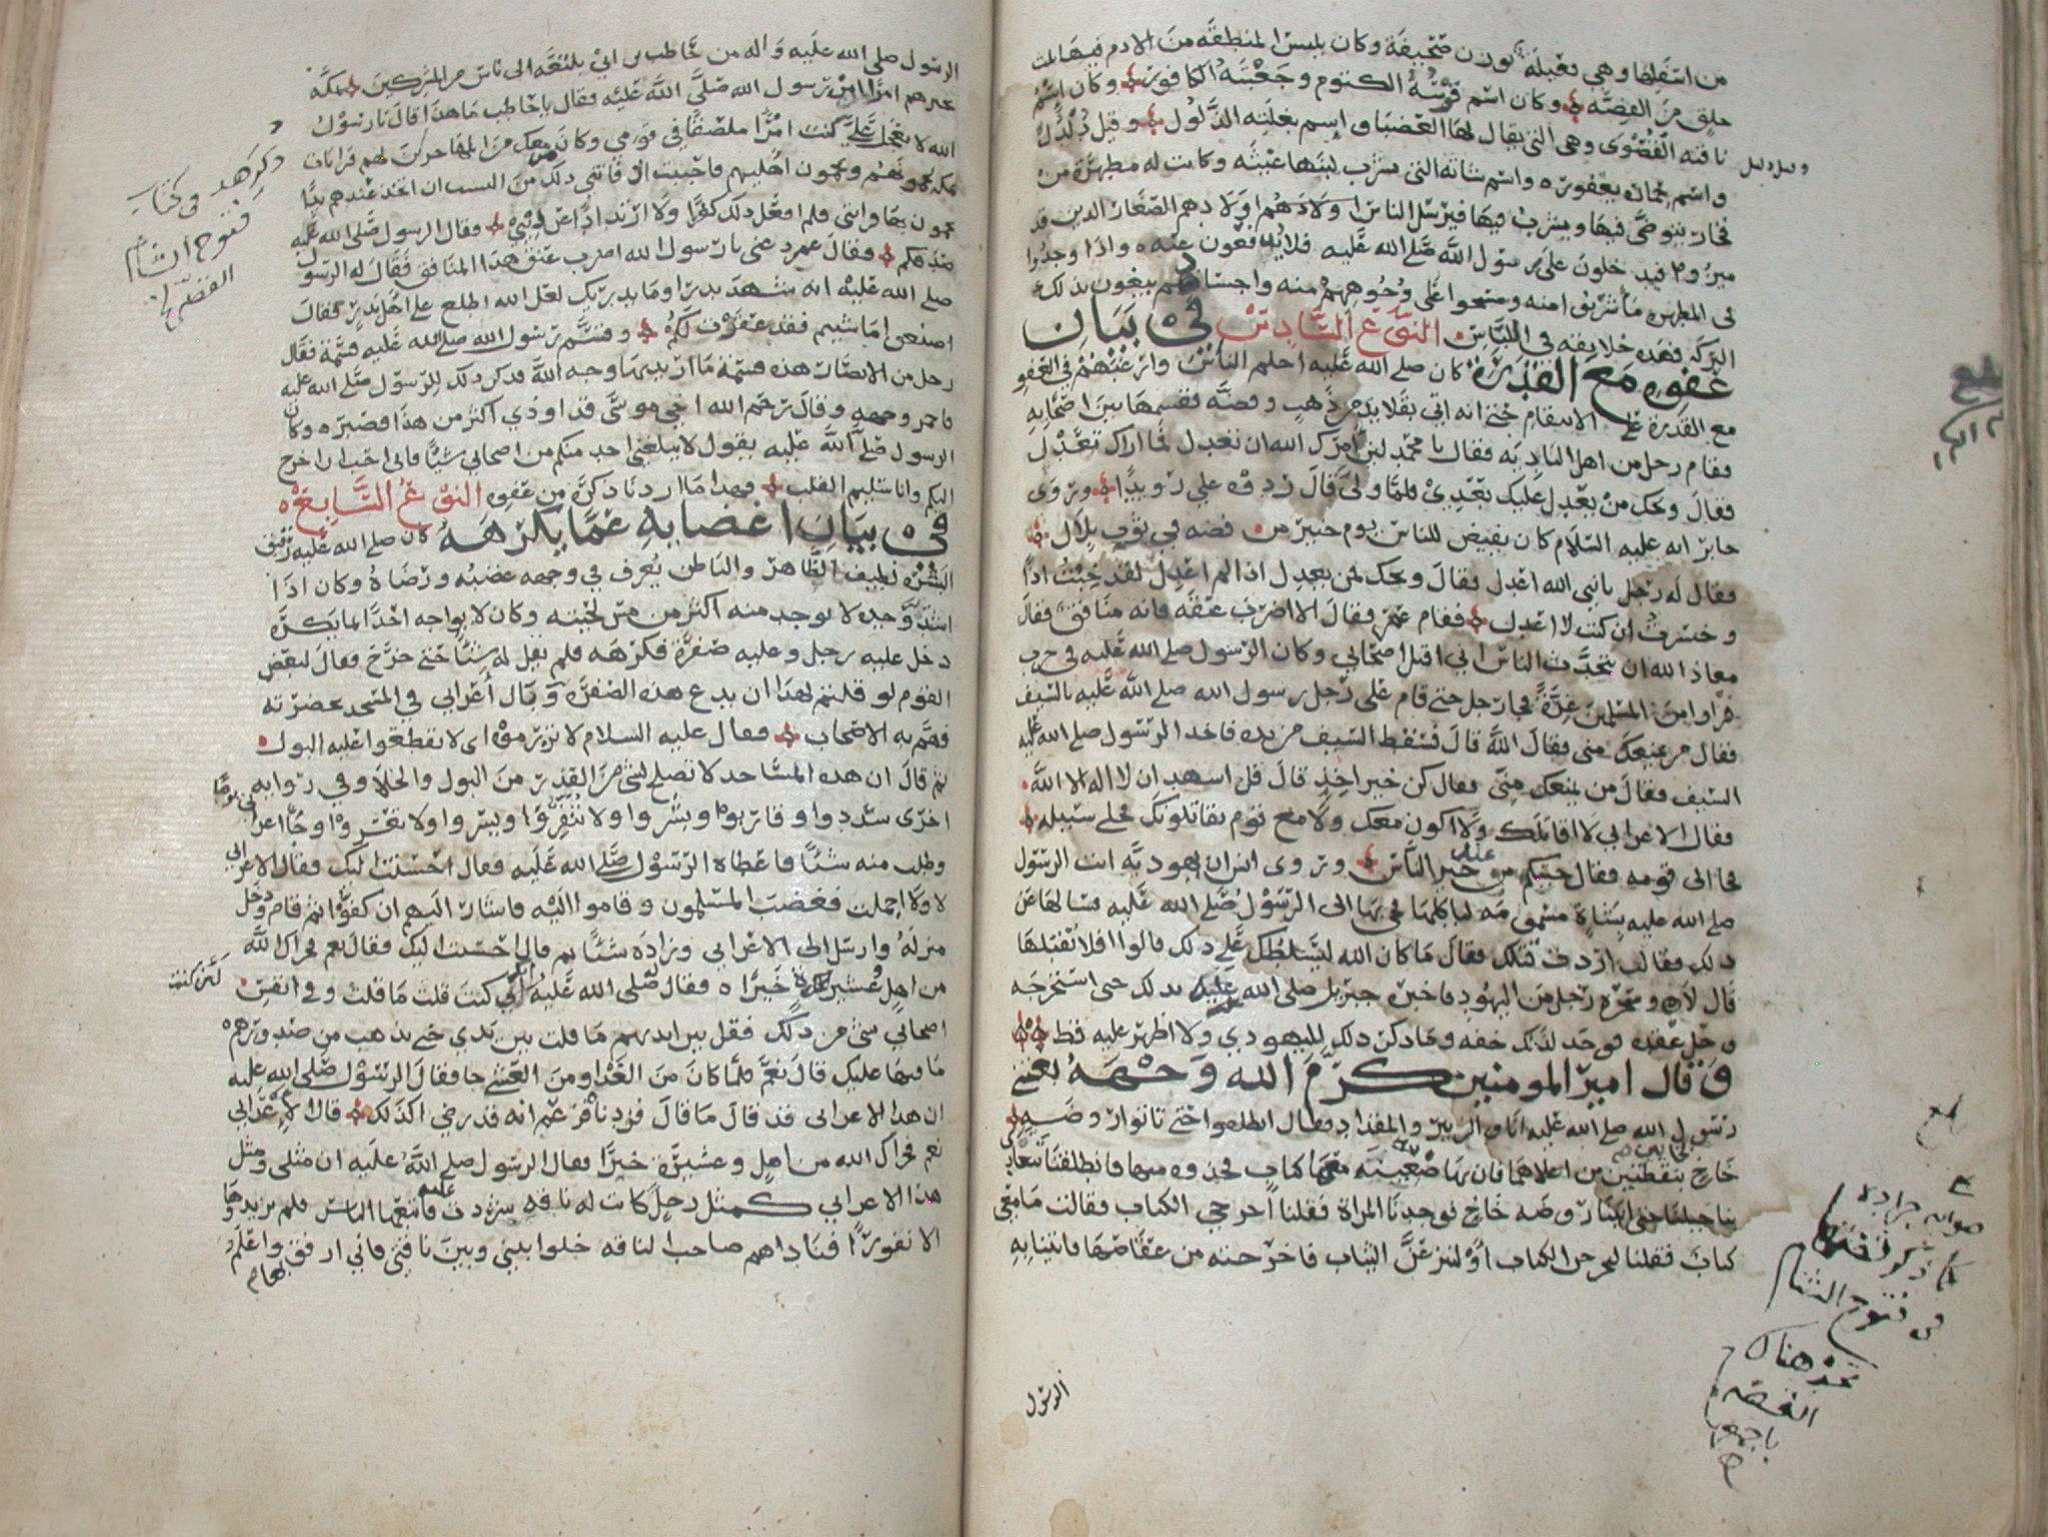 من اسفلها وهي ثقيلة بوزن صحيفة وكان يلبس المنطقة من الادم فيها ثلث
حلق من الفضه وكان اسم قوسه الكتوم وجعبته الكافور وكان اسم
ناقته القصوى وهي التي يقال لها العضبا واسم بغلته الدلول وقيل دلدل
واسم حماره يعفور واسم شاته التي يشرب لبنها عيثه وكانت له مطهرة من
فخار يتوضى فيها ويشرب فيها فيرسل الناس اولادهم الصغار الذين قد
خلون على رسول الله صلى الله عليه فلا يدفعون عنه واذا وجدوا
في المطهره ما شربوا منه ومسحوا على وجوههم منه واجسادهم يبغون بذلك
البركه فهذه خلايقه في اللباس النوع السادس في بيان
عفوه مع القدرة كان صلى الله عليه احلم الناس وارغبهم في العفو
مع القدرة على الانتقام حتى انه اتي بقلايد من ذهب وفضه فقسمها بين اصحابه
فقام رجل من اهل البادية فقال يا محمد لين امرك الله ان تعدل فما اراك تعدل
فقال ويحك من يعدل عليك بعدي فلما ولى قال ردوه علي رويدا وروى
جابر انه عليه السلام كان يفيض للناس يوم حنين من فضه في ثوب بلال
فقال له رجل يا نبي الله اعدل فقال ويحك فمن يعدل اذا لم اعدل لقد خبت اذا
وخسرت ان كنت لا اعدل فقام عمر فقال الا اضرب عنقه فانه منافق فقال
معاذ الله ان يتحدث الناس اني اقتل اصحابي وكان الرسول صلى الله عليه في حرب
فراوا من المسلمين غرة فجا رجل حتى قام على رسول الله صلى الله عليه بالسيف
فقال من يمنعك مني فقال الله قال فسقط السيف من يده فاخذ الرسول صلى الله عليه
السيف فقال من يمنعك مني فقال كن خير اخذ قال قل اشهد ان لا اله الا الله
فقال الاعرابي لا اقاتلك ولا اكون معك ولا مع قوم يقاتلونك فخلى سبيله
فجا الى قومه فقال جيتكم من عند خير الناس وروى انس ان يهودية اتت الرسول
صلى الله عليه بشاة مسمومه لياكلها فجي بها الى الرسول صلى الله عليه فسالها عن
ذلك فقالت اردت قتلك فقال ما كان الله ليسلطك على ذلك قالوا افلا نقتلها
قال لا وسحره رجل من اليهود فاخبره جبريل صلى الله عليه بذلك حتى استخرجه
وحل عقده فوجد لذلك خفه وما ذكر ذلك لليهودي ولا اظهر عليه قط
وقال امير المومنين كرم الله وجهه بعثني
رسول الله صلى الله عليه انا والزبير والمقداد فقال انطلقوا حتى تاتوا روضة
خاخ فان بها ضعينة معها كتاب فخذوه منها فانطلقنا
حتى اتينا روضه خاخ فوجدنا المراة فقلنا اخرجي الكتاب فقالت ما معي
كتاب فقلنا لتخرجن الكتاب او لننزعن الثياب فاخرجته من عقاصها فاتينا به
الرسول
كما ذكر
في فتوح الشام
تجد هناك
القصه
الرسول صلى الله عليه واله من حاطب بن ابي بلتعة الى ناس من المشركين بمكة
يخبرهم امرا من رسول الله صلى الله عليه فقال يا حاطب ما هذا قال يا رسول
الله لا تعجل علي كنت امرا ملصقا في قومي وكان من معك من المهاجرين لهم قرابات
بمكه يحمون اهليهم فاحببت اذ فاتني ذلك من النسب ان اتخذ عندهم يدا
يحمون بها قرابتي فلم افعل ذلك كفرا ولا ارتدادا عن ديني فقال الرسول صلى الله عليه
صدقكم فقال عمر دعني يا رسول الله اضرب عنق هذا المنافق فقال له الرسول
صلى الله عليه انه شهد بدرا وما يدريك لعل الله اطلع على اهل بدر فقال
اصنعوا ما شيتم فقد غفرت لكم وقسم رسول الله صلى الله عليه قسمة فقال
رجل من الانصار هذه قسمة ما اريد بها وجه الله فذكر ذلك للرسول صلى الله عليه
فاحمر وجهه وقال رحم الله اخي موسى قد اوذي اكثر من هذا فصبر وكان
الرسول صلى الله عليه يقول لا يبلغني احد منكم من اصحابي شيا فاني احب ان اخرج
اليكم وانا سليم القلب فهذا ما اردنا ذكره من عفوه النوع السابع
في بيان اغضايه عما يكرهه كان صلى الله عليه رقيق
البشره لطيف الظاهر والباطن يعرف في وجهه غضبه ورضاه وكان اذا
اشتد وجده لا يوجد منه اكثر من مس لحيته وكان لا يواجه احدا بما يكره
دخل عليه رجل وعليه صفرة فكرهه فلم يقل له شيا حتى خرج فقال لبعض
القوم لو قلتم لهذا ان يدع هذه الصفره وبال اعرابي في المسجد بحضرته
فهم به الاصحاب فقال عليه السلام لا تزرموه اى لا تقطعوا عليه البول
ثم قال ان هذه المساجد لا تصلح لشي من القذر من البول والخلا وفي روايه
اخرى سددوا وقاربوا وبشروا ولا تنفروا ويسروا ولا تعسروا وجا اعرابي يوما
وطلب منه شيا فاعطاه الرسول صلى الله عليه فقال احسنت اليك فقال الاعرابي
لا ولا اجملت فغضب المسلمون وقاموا اليه فاشار اليهم ان كفوا ثم قام ودخل
منزله وارسل الى الاعرابي وزاده شيا ثم قال احسنت اليك فقال نعم فجزاك الله
من اهل وعشيرة خيرا فقال صلى الله عليه كنت قلت ما قلت وفي انفس
اصحابي شي من ذلك فقل بين ايديهم ما قلت بين يدي حتى يذهب من صدورهم
ما فيها عليك قال نعم فلما كان من الغد او من العشي جا فقال الرسول صلى الله عليه
ان هذا الاعرابي قد قال ما قال فزدناه فزعم انه قد رضي اكذلك قال الاعرابي
نعم فجزاك الله من اهل وعشيرة خيرا فقال الرسول صلى الله عليه ان مثلي ومثل
هذا الاعرابي كمثل رجل كانت له ناقه شردت عليه فاتبعها الناس فلم يزيدوها
الا نفورا فناداهم صاحب الناقه خلوا بيني وبين ناقتي فاني ارفق واعلم
بها
ذكر هذه في كتاب
فتوح الشام
القصه